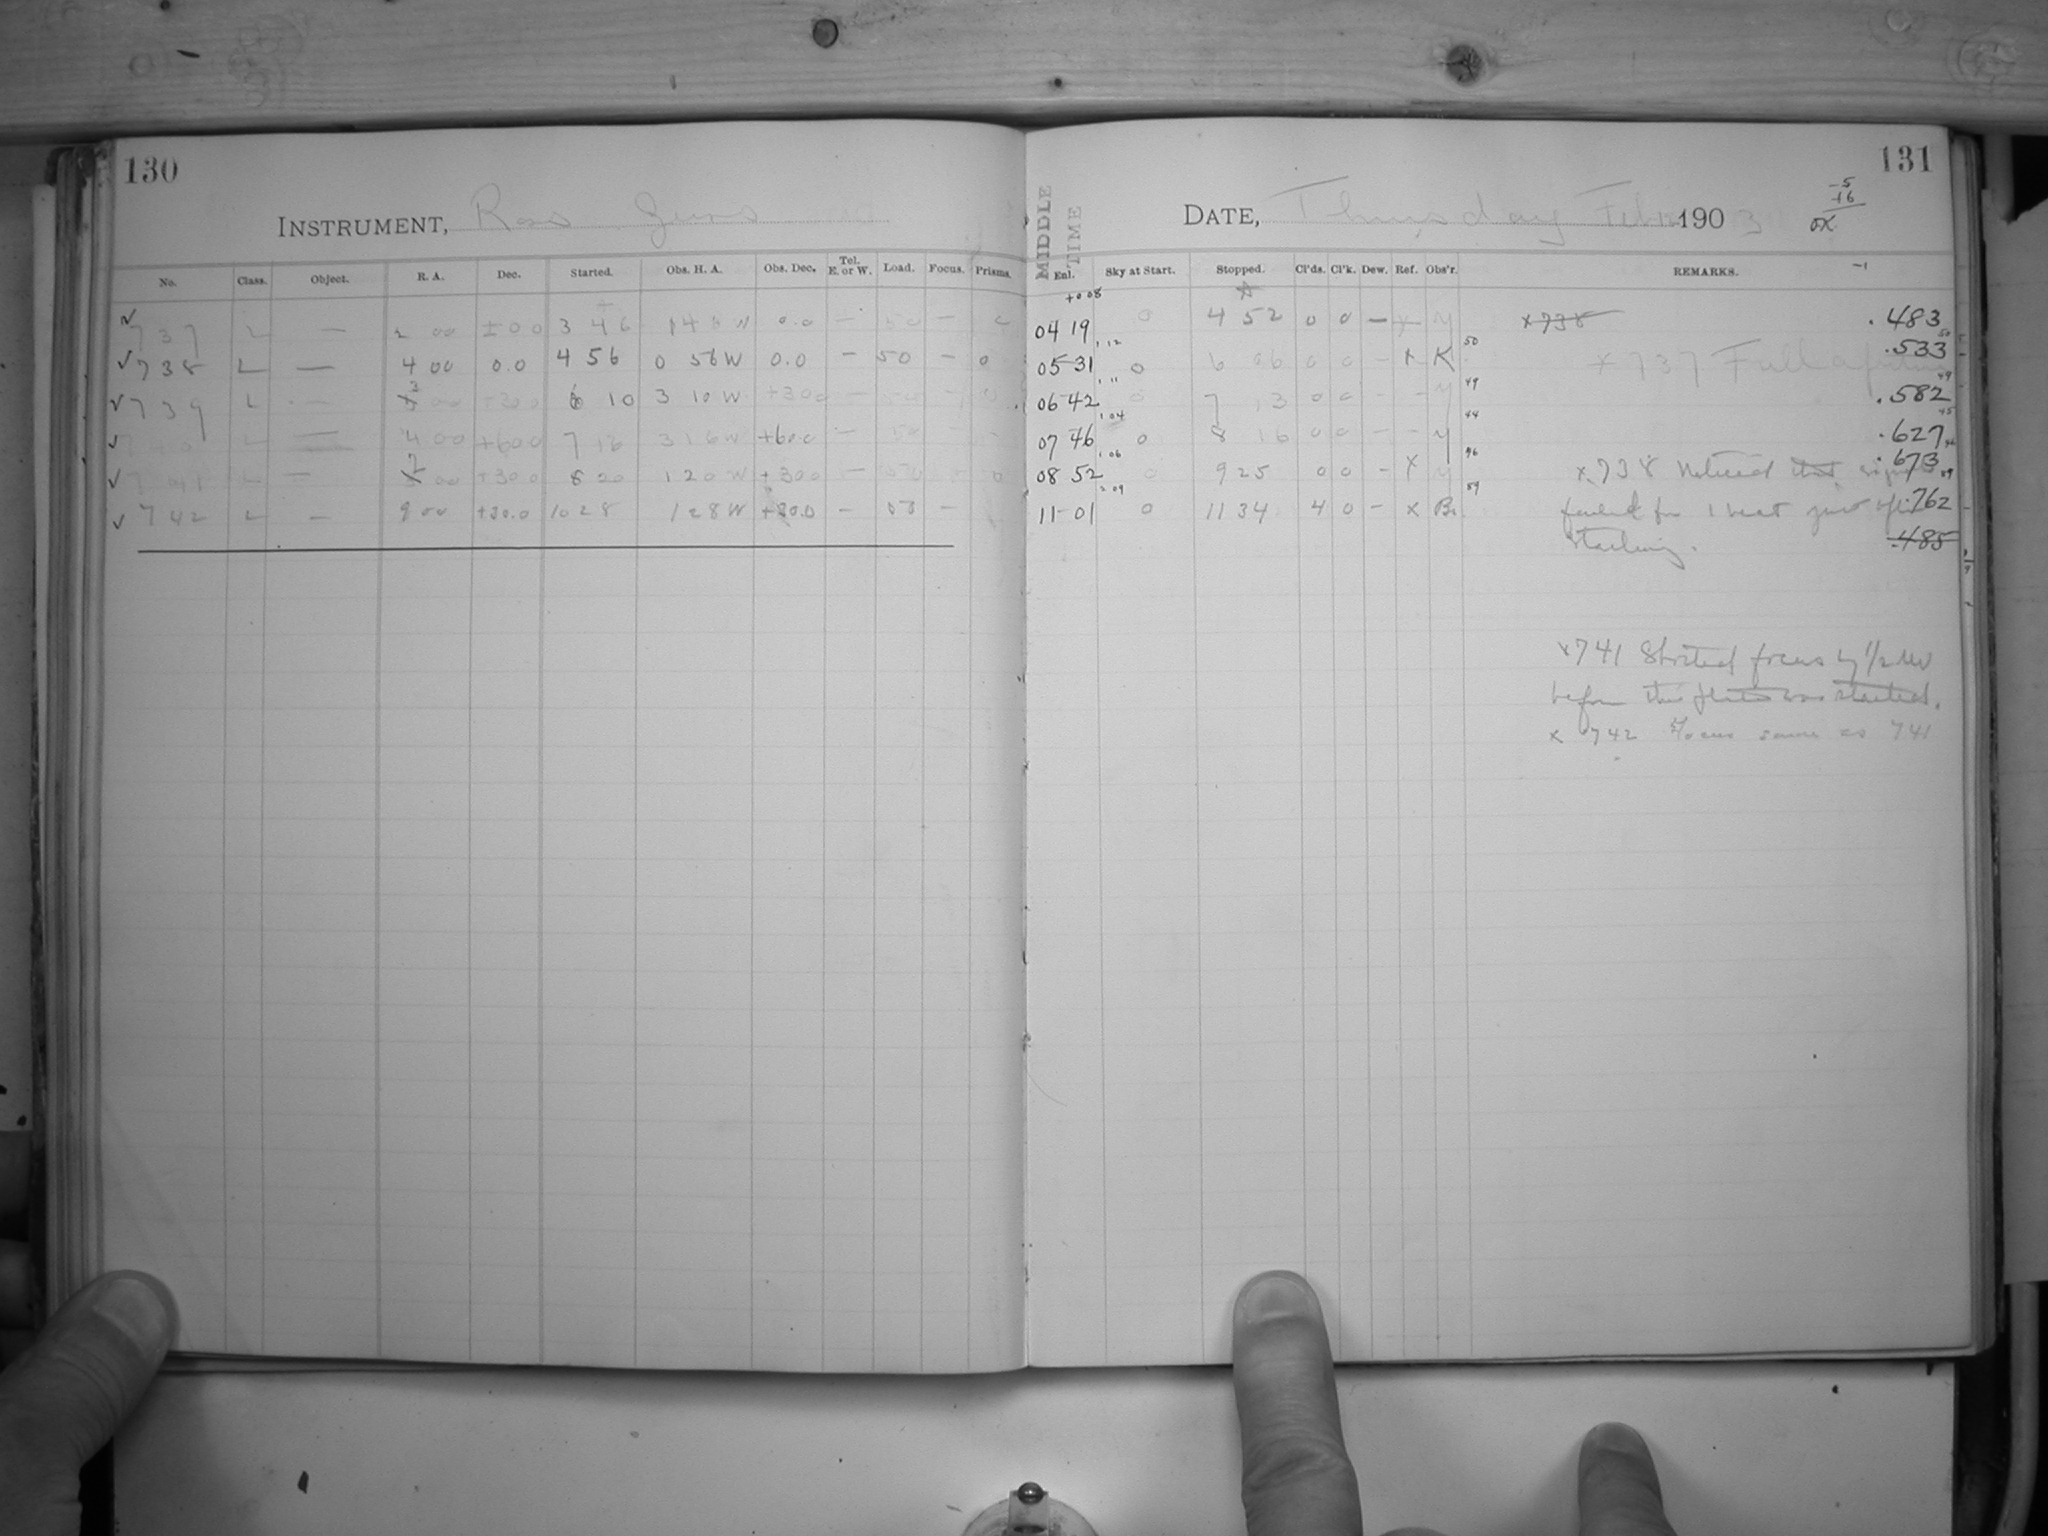 130
INSTRUMENT,
No. Class. Object. R. A. Dec. Started. Obs. H. A. Obs. Dec. Tel. E. or W. Load. Focus. Prisms.
737 L — 2 00 ±00 3 46 0.0 — 50 — 0
738 L — 4 00 0.0 4 56 0 56 W 0.0 — 50 — 0
739 L — 3 00 +300 6 10 3 10 W +300 —
L 4 00 +600 7 16 3 16 W +60.0 — 50
741 L — 7 00 +300 8 20 1 20 W +300 — 0
742 L — 9 00 +30.0 10 28 1 28 W +30.0 — 50 —
131
DATE, Thursday Feb 1903
-5
-16
MIDDLE TIME
Enl. Sky at Start. Stopped. Cl'ds. Cl'k. Dew. Ref. Obs'r. REMARKS.
-1
+008
04 19 0 4 52 0 0 — x y x738 .483
1 12 50
05 31 0 6 06 0 0 - x K .533
x 737 Full
1 11 49
06 42 0 7 13 0 0 - - y .582
1 04 44
07 46 0 8 16 0 0 - - y .627
1 06 46
08 52 0 9 25 0 0 - x y .673
x 738 Noticed that
2 09 89
11 01 0 11 34 4 0 - x .762
for 1 beat just after
starting. .485
x741 Shorted focus by 1/2
before this plate was started.
x 742 Focus same as 741